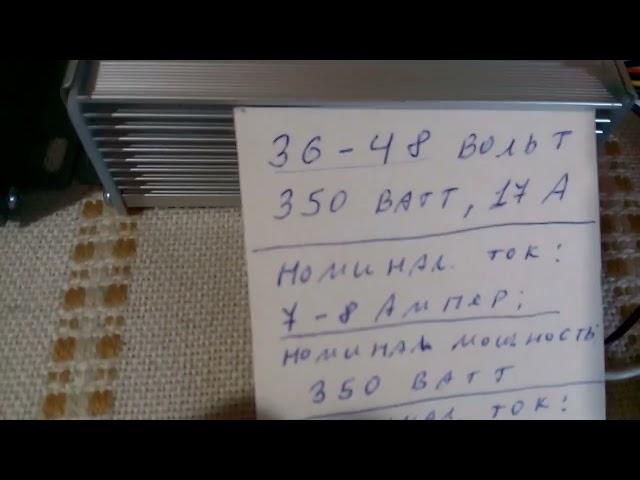 36-48 ВОЛЬТ
350 ВАТТ, 17 А
НОМИНАЛ. ТОК:
7-8 АМПЕР;
НОМИНАЛ МОЩНОСТЬ
350 ВАТТ
ТОК: